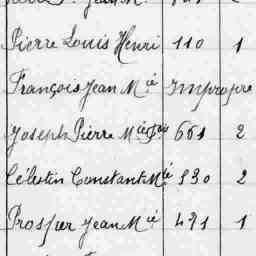 Pierre Louis Henri 110 1
François Jean Mié Impropre
Joseph Pierre Mie 661 2
Célestin Constant Mié 330 2
Prosper Jean Mié 491 1